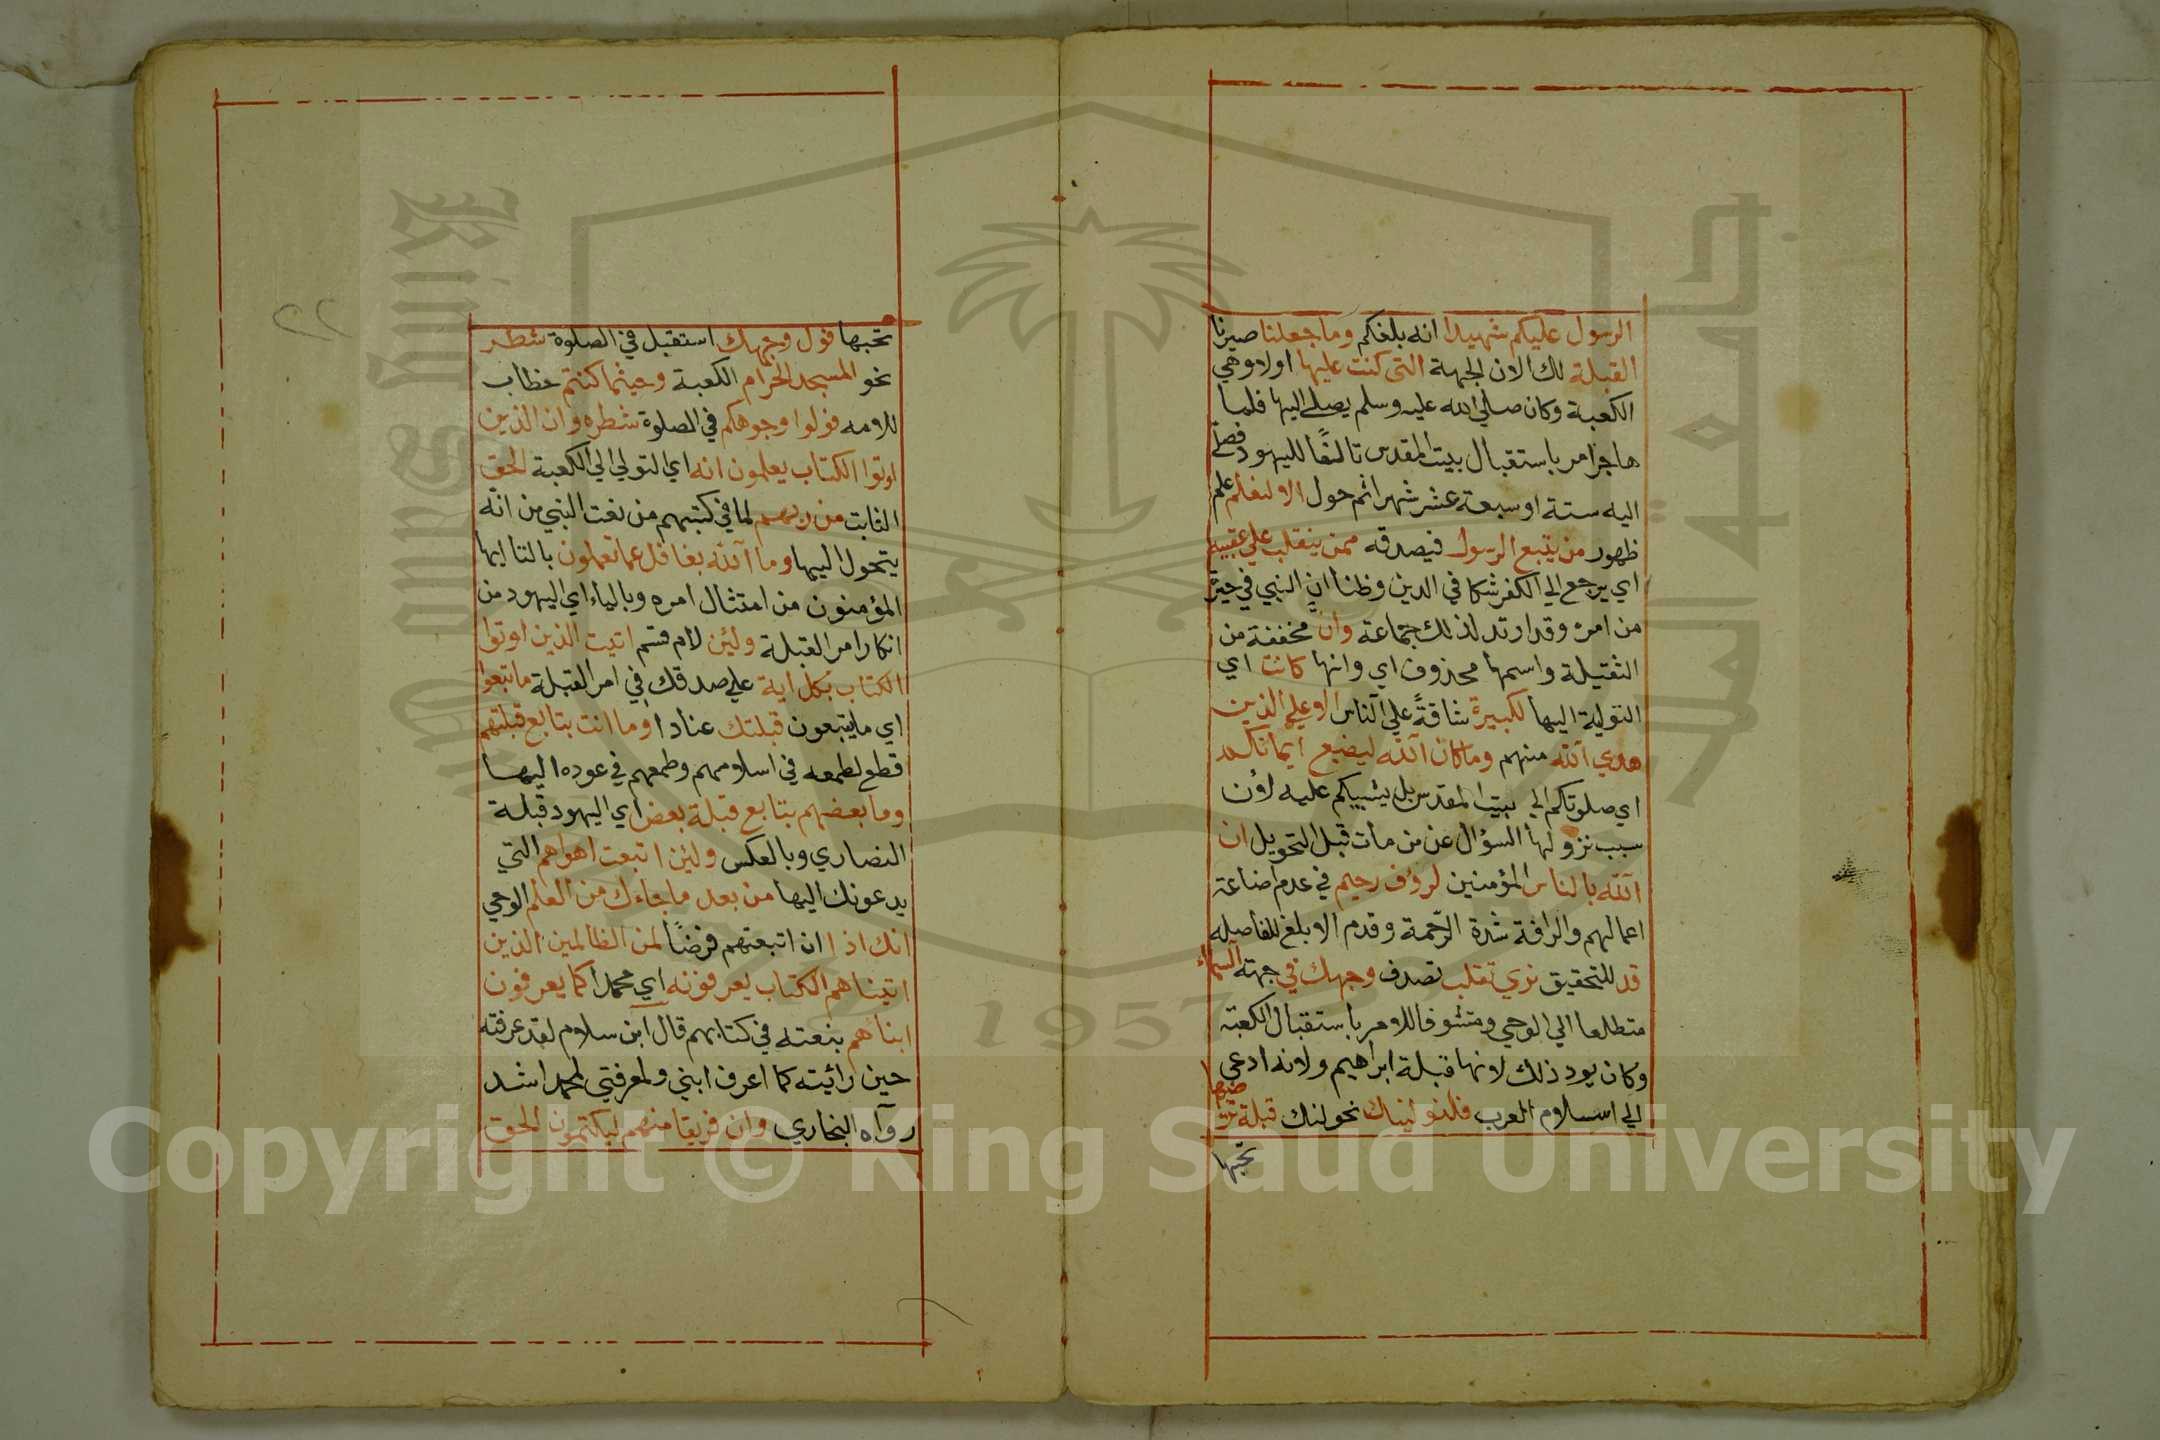 الرسول عليكم شهيدا انه بلغكم وما جعلنا صيرنا
القبلة لك الان الجهة التى كنت عليها اولا وهي
الكعبة وكان صلي الله عليه وسلم يصلي اليها فلما
هاجر امر باستقبال بيت المقدس تالفًا لليهود فصلّي
اليه ستة او سبعة عشر شهرا ثم حول الا لنعلم علم
ظهور من يتبع الرسول فيصدقه ممن ينقلب علي عقبيه
اي يرجع الي الكفر شكا في الدين وظنا ان النبي في حيرة
من امره وقد ارتد لذلك جماعة وان مخففة من
الثقيلة واسمها محذوف اي وانها كانت اي
التولية اليها لكبيرة شاقةً علي الناس الا علي الذين
هدي الله منهم وما كان الله ليضيع ايمانكم
اي صلوتكم الي بيت المقدس بل يثيبكم عليه لان
سبب نزولها السؤال عن من مات قبل التحويل ان
الله بالناس المؤمنين لرؤف رحيم في عدم اضاعة
اعمالهم والرافة شدة الرّحمة وقدم الابلغ للفاصله
قد للتحقيق نري تقلب تصرف وجهك في جهة السماء
متطلعا الي الوحي ومتشوفا للامر باستقبال الكعبة
وكان يود ذلك لانها قبلة ابراهيم ولانه ادعي
الي اسلام العرب فلنولينك نحولنك قبلة ترضيها
تحبها
٢٢
تحبها فول وجهك استقبل في الصلوة شطر
نحو المسجد الحرام الكعبة وحيثما كنتم خطاب
للامه فولوا وجوهكم في الصلوة شطره وان الذين
اوتوا الكتاب يعلمون انه اي التولي الي الكعبة الحق
الثابت من ربهم لما في كتبهم من نعت النبي من انّه
يتحول اليها وما الله بغافل عما تعملون بالتا ايها
المؤمنون من امتثال امره وبالياء اي اليهود من
انكار امر القبلة ولئن لام قسم اتيت الذين اوتوا
الكتاب بكل اية علي صدقك في امر القبلة ما تبعوا
اي ما يتبعون قبلتك عنادا وما انت بتابع قبلتهم
قطع لطمعه في اسلامهم وطمعهم في عوده اليها
وما بعضهم بتابع قبلة بعض اي اليهود قبلة
النصاري وبالعكس ولئن اتبعت اهواهم التي
يدعونك اليها من بعد ما جاءك من العلم الوحي
انك اذا ان اتبعتهم فرضًا لمن الظالمين الذين
اتيناهم الكتاب يعرفونه اي محمدا كما يعرفون
ابناهم بنعته في كتابهم قال ابن سلام لقد عرفته
حين رائيته كما اعرف ابني ولمعرفتي لمحمد اشد
رواه البخاري وان فريقا منهم ليكتمون الحق
Copyright © King Saud University
1957